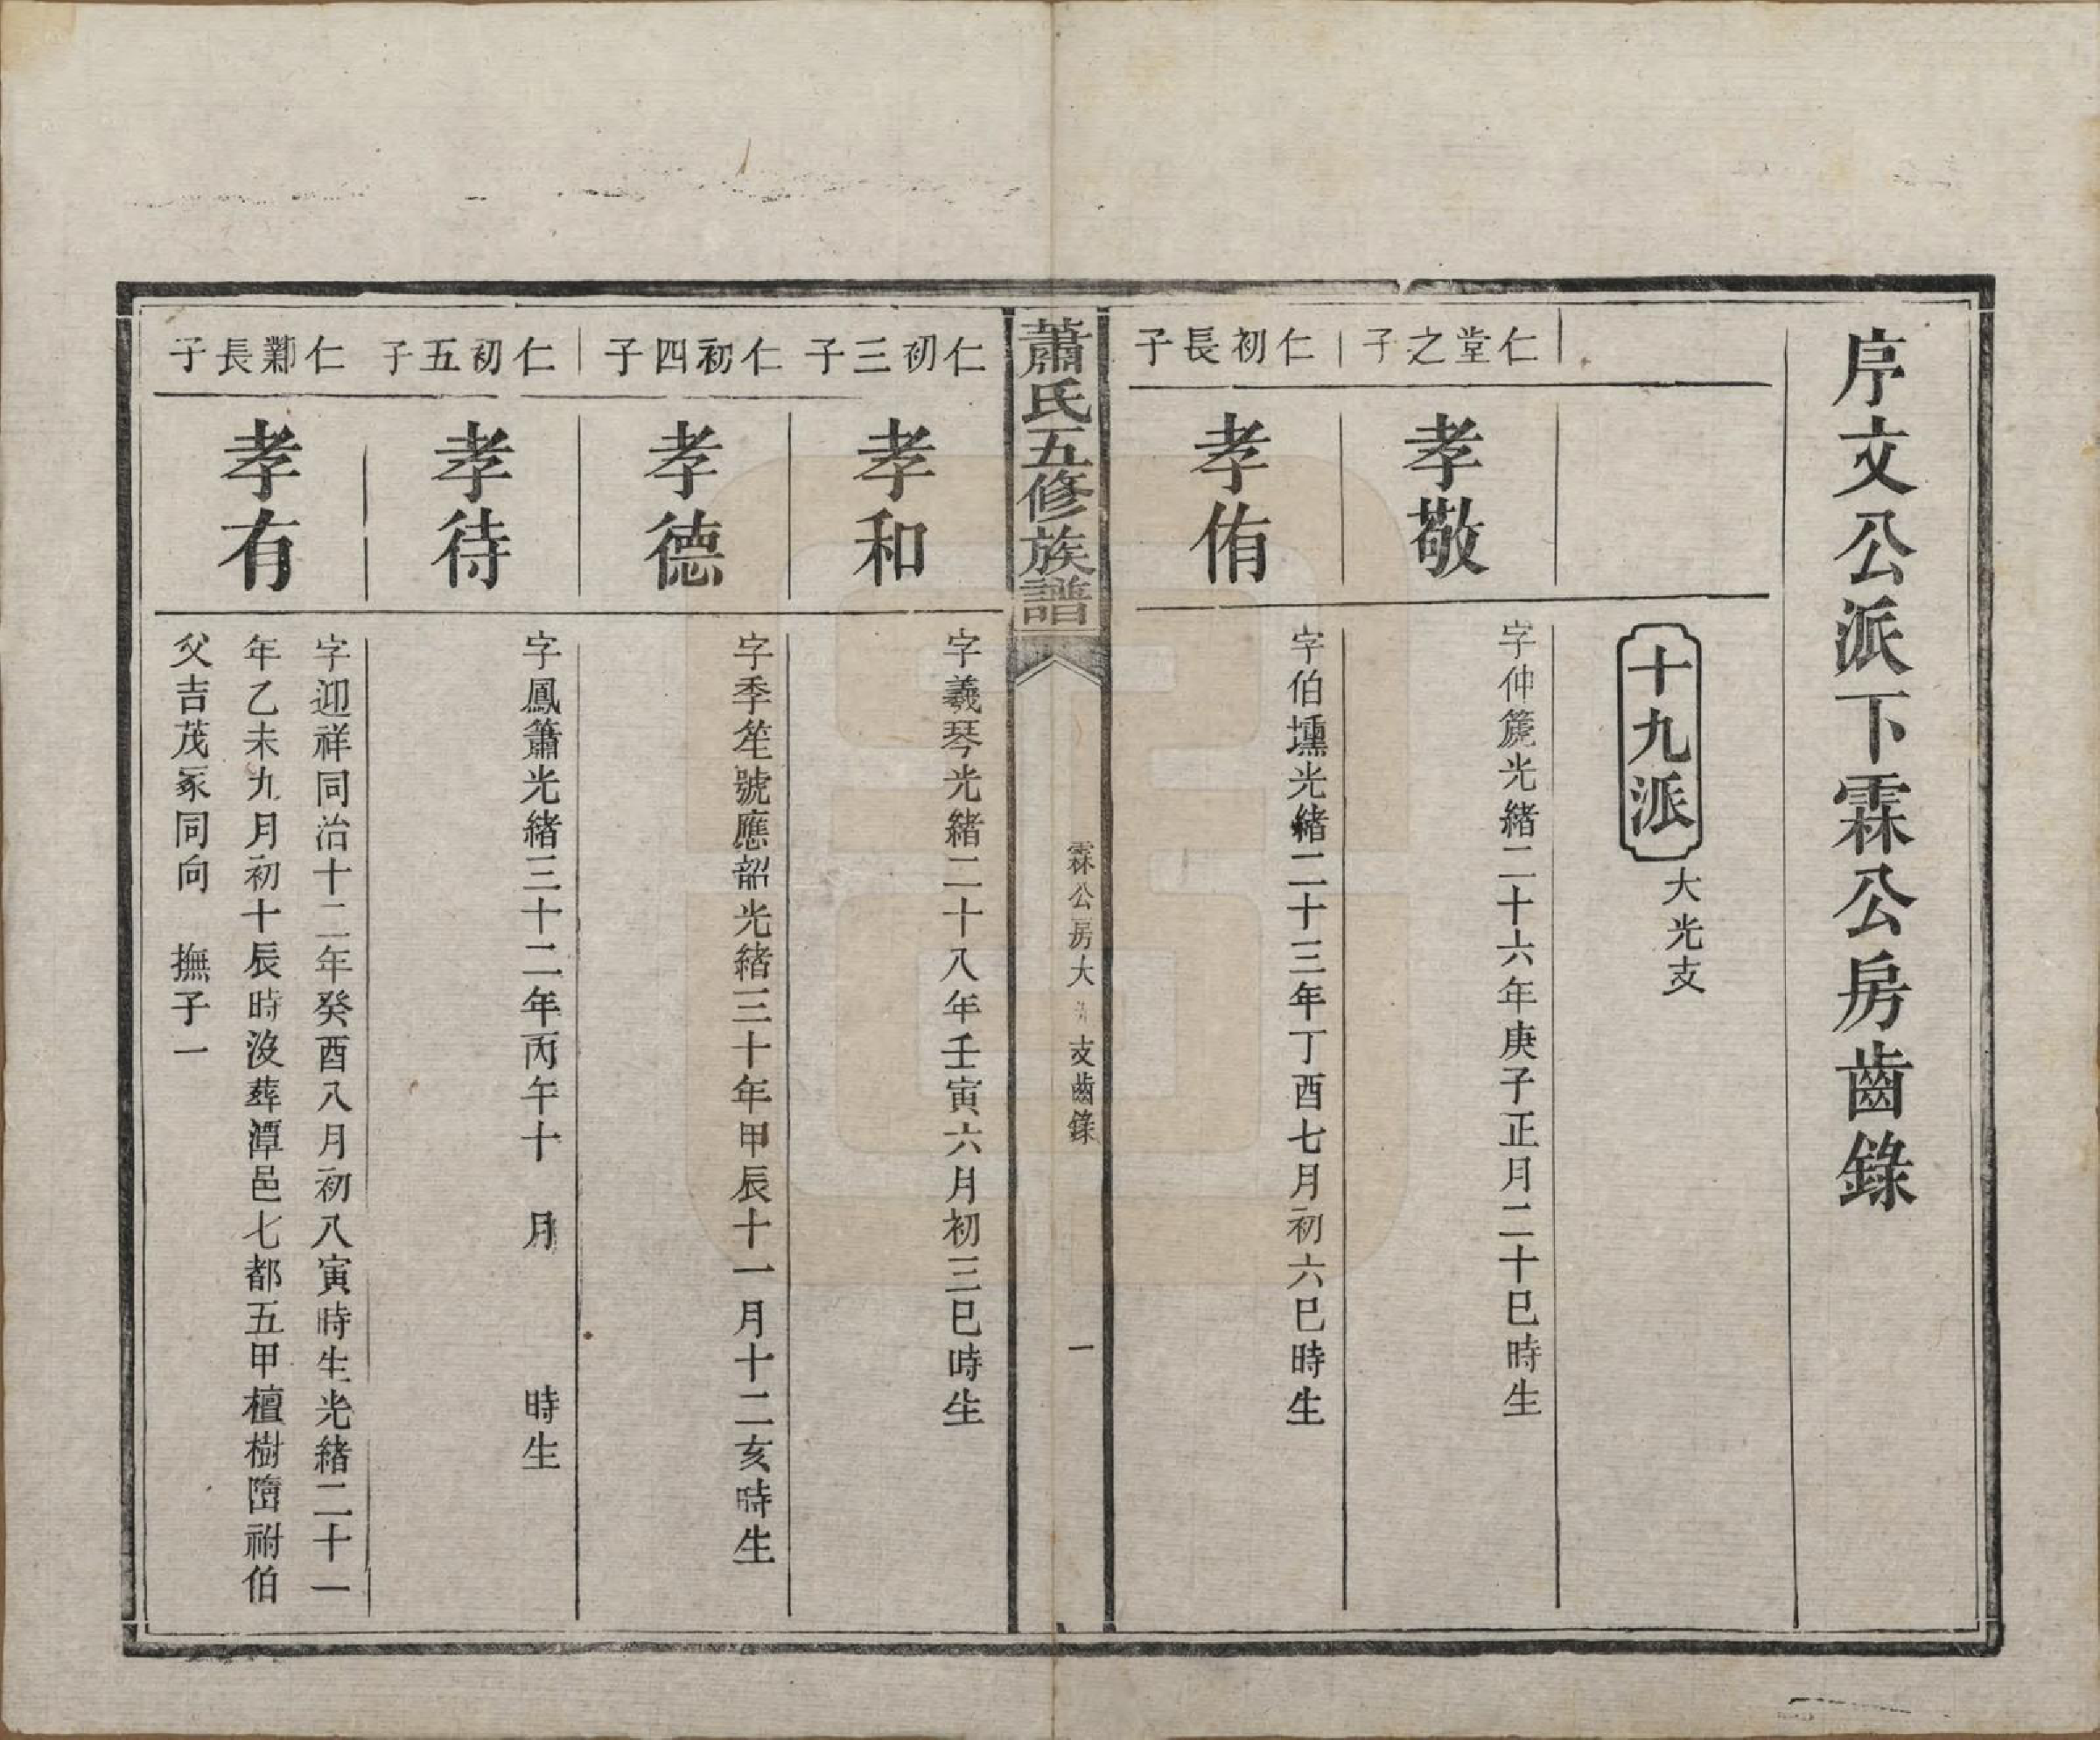 序文公派下霖公房齒錄
十九派
大光支
仁堂之子
孝敬
字仲箎光緒二十六年庚子正月二十巳時生
仁初長子
孝侑
字伯壎光緒二十三年丁酉七月初六巳時生
蕭氏五修族譜
霖公房大 支齒錄
一
仁初三子
孝和
字羲琴光緒二十八年壬寅六月初三巳時生
仁初四子
孝德
字季笙號應韶光緒三十年甲辰十一月十二亥時生
仁初五子
孝待
字鳳簫光緒三十二年丙午十 月 時生
仁鄴長子
孝有
字迎祥同治十二年癸酉八月初八寅時生光緒二十一
年乙未九月初十辰時沒葬潭邑七都五甲檀樹 祔伯
父吉茂冢同向 撫子一